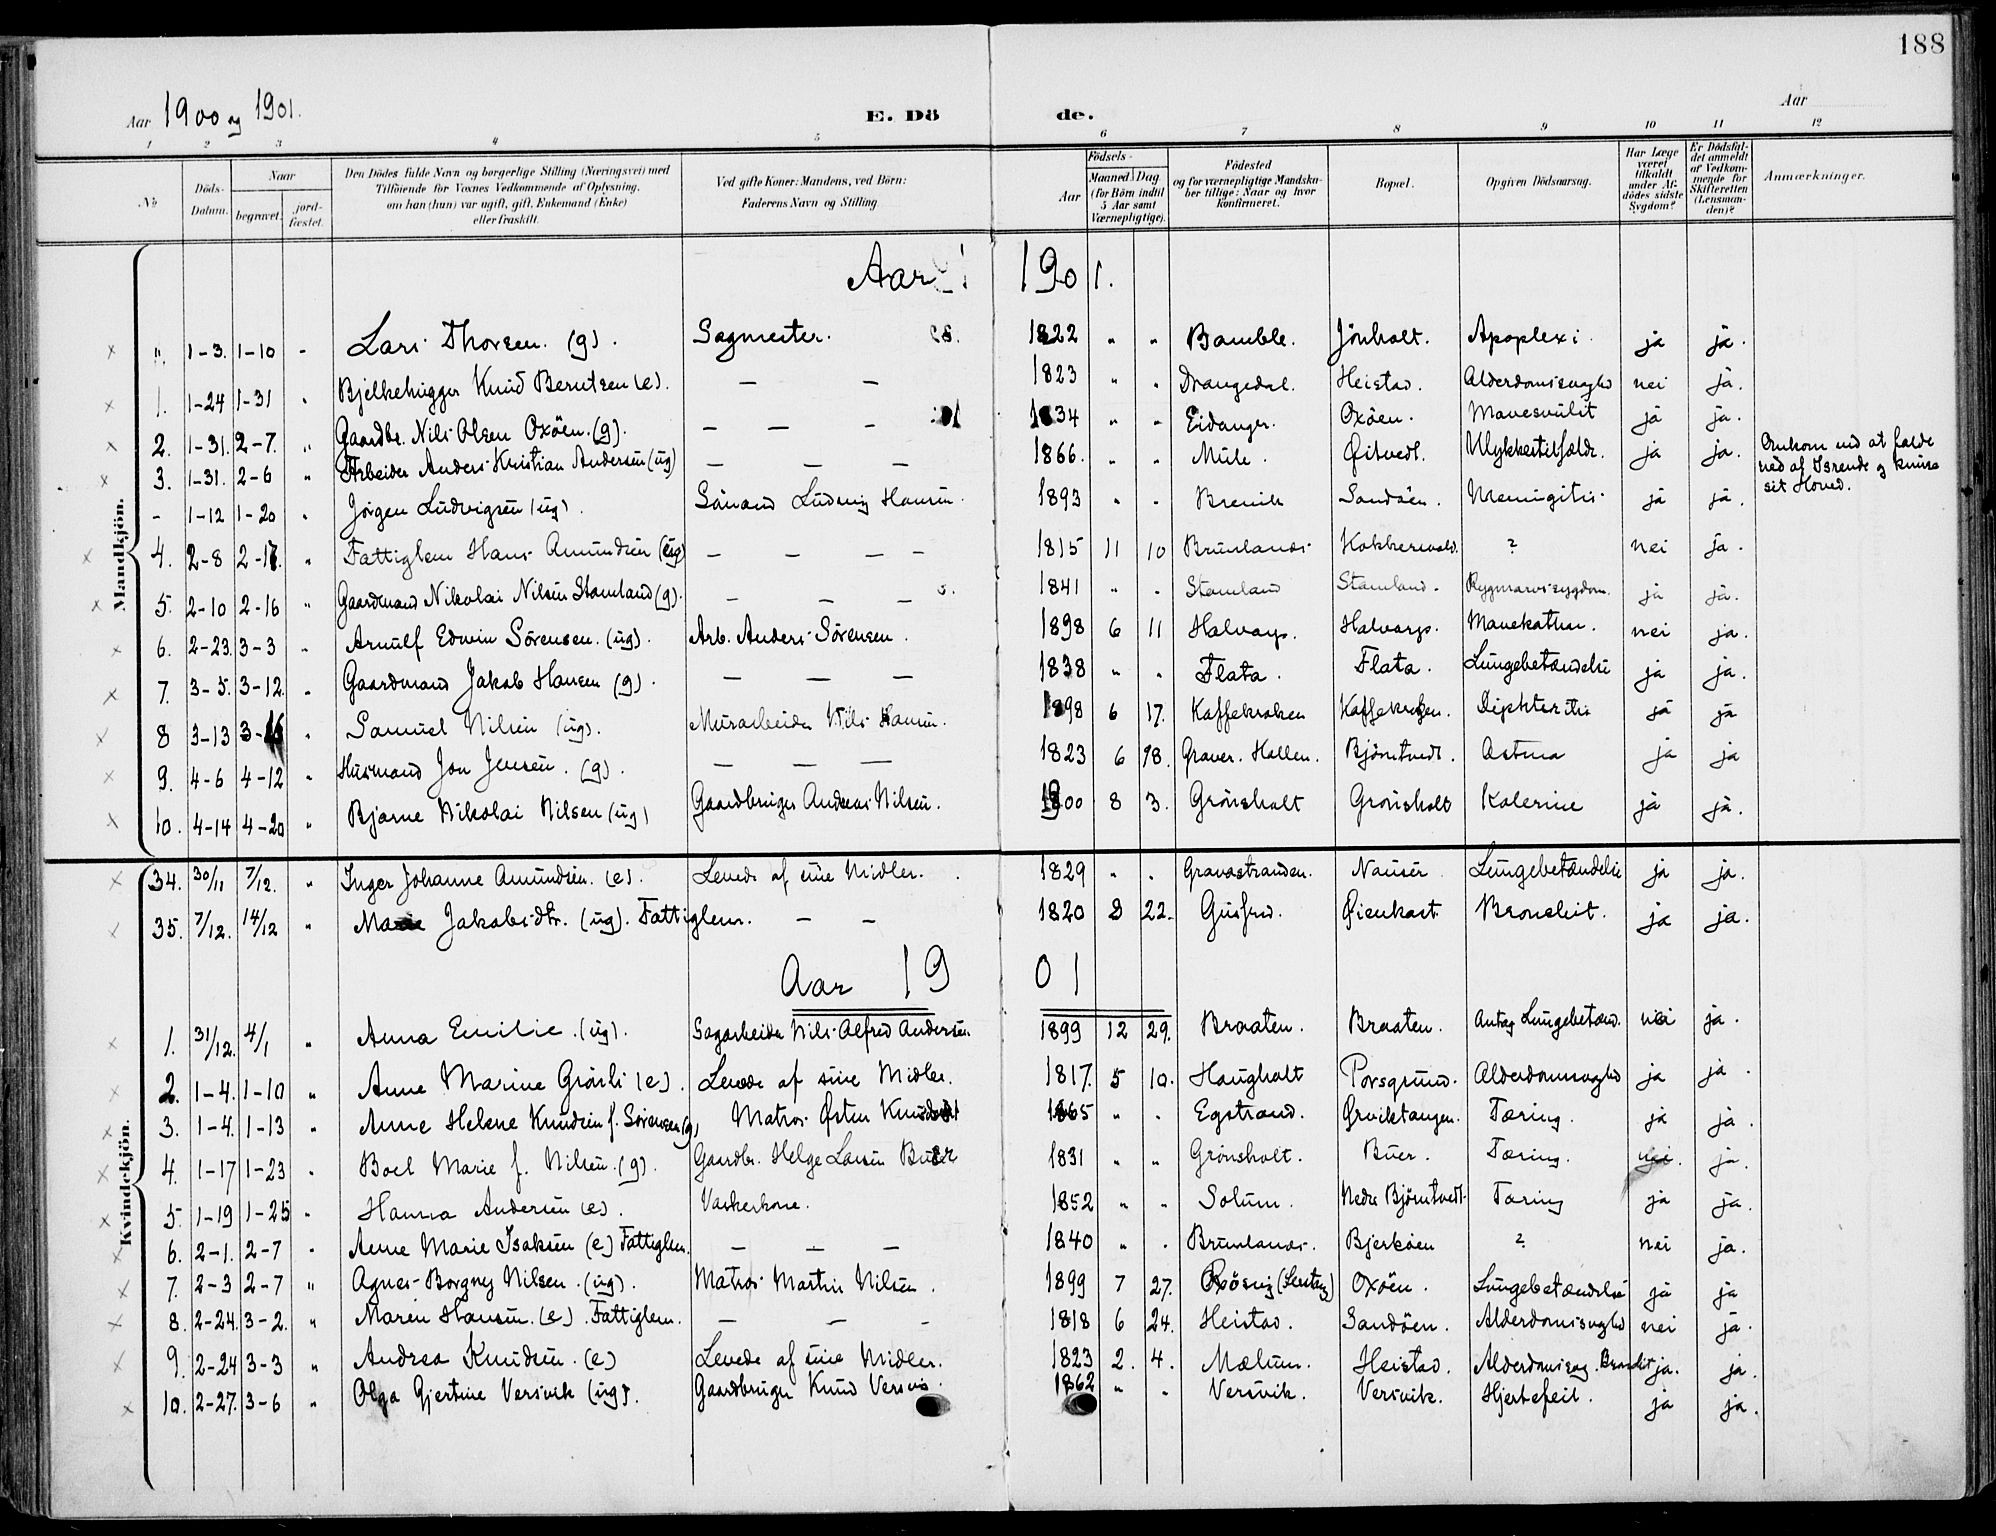 188
Aar 1900 og 1901. E. Dö de. Aar
1 2 3 4 5 6 7 8 9 10 11 12
No
Döds-Datum.
Naar
begravet. jord-fæstet.
Den Dödes fulde Navn og borgerlige Stilling (Næringsvei) med
Tilföiende for Voxnes Vedkommende af Oplysning,
om han (hun) var ugift, gift, Enkemand (Enke)
eller fraskilt.
Ved gifte Koner: Mandens, ved Börn:
Faderens Navn og Stilling.
Födsels-
Aar Maaned Dag
(for Börn indtil
5 Aar samt
Værnepligtige).
Födested
og for værnepligtige Mandska-
ber tillige: Naar og hvor
konfirmeret.
Bopæl.
Opgiven Dödsaarsag.
Har Læge
været
tilkaldt
under Af-
dödes sidste
Sygdom?
Er Dödsfal-
det anmeldt
af Vedkom-
mende for
Skifteretten
(Lensman-
den)?
Anmærkninger.
Mandkjön.
Aar 1901.
". 1-3. 1-10 - Lars Thorsen. (g). Sagmester. 1822 " " Bamble. Jönholt. Apoplexi. ja ja.
1. 1-24 1-31 " Bjelkehugger Knud Berntsen (e). — — 1823 " " Drangedal. Heistad. Alderdomssvaghed nei ja.
2. 1-31. 2-7. " Gaardbr. Nils Olsen Oxöen. (g). — — - 1834 " " Eidanger. Oxöen. Mavesvulst ja ja.
3. 1-31. 2-6 " Arbeider Anders Kristian Andersen (ug) — — — 1866. " " Mule. Öitvedt. Ulykkestilfælde. ja ja. Omkom ved at falde
ned af Isrende og knuse
sit Hoved.
- 1-12 1-20 " Jörgen Ludvigsen (ug). Sömand Ludvig Hansen. 1893 " " Brevik Sandöen. Meningitis. ja ja.
4. 2-8 2-17. " Fattiglem Hans Amundsen (ug) — — — - 1815 11 10 Brunlanes ? nei ja.
5. 2-10 2-16 " Gaardmand Nikolai Nilsen Stamland (g). — — — 1841 " " Stamland Stamland. Rygmarvssygdom. ja ja.
6. 2-23. 3-3 " Arnulf Edwin Sörensen. (ug). Arb. Anders Sörensen. 1898 6 11 Halvarp. Halvarp. Mavekatarr. nei ja.
7. 3-5. 3-12. " Gaardmand Jakob Hansen (g). — — — 1838 " " Flata. Flata. Lungebetændelse ja ja.
8 3-13 3-16 " Samuel Nilsen (ug). Murarbeider Nils Hansen. 1898 6 17. Kaffekroken Kaffekroken. Diphteritis ja ja
9. 4-6 4-12 " Husmand Jon Jensen. (g). — — — 1823 6 18. Graver. Hallen. Björntvedt. Astma ja ja
10. 4-14 4-20 " Bjarne Nikolai Nilsen (ug) Gaardbruger Andreas Nilsen. 1900 8 3. Grönsholt Grönsholt Kolerine ja ja.
Kvindekjön.
34. 30/11 7/12. " Inger Johanne Amundsen. (e). Levede af sine Midler. 1829 " " Gravastranden. Lungebetændelse ja ja.
35. 7/12. 14/12 " Maren Jakobsdtr. (ug). Fattiglem. — — 1820 8 22. Gusfred. Öienkast Bronchit. ja ja.
Aar 1901
1. 31/12. 4/1 " Anna Emilie. (ug). Sagarbeider Nils Alfred Andersen 1899 12 29. Braaten. Braaten. Antag Lungebetænd. nei ja.
2. 1-4. 1-10 " Anne Marine Gråsli (e). Levede af sine Midler. 1817. 5 10. Haugholt Porsgrund. Alderdomssvaghed ja ja.
3. 1-4. 1-13 " Anne Helene Knudsen f. Sörensen (g) Matros Østen Knudsen 1865 " " Egstrand. Ørviktangen. Tæring. ja ja.
4. 1-17 1-23 " Boel Marie f. Nilsen. (g). Gaardbr. Helge Larsen Buer 1831 " " Grönsholt. Buer. Tæring. nei. ja.
5. 1-19 1-25 " Hanna Andersen (e). Vaskerkone. 1852 " " Solum. Nedre Björntvedt. Tæring ja ja.
6. 2-1. 2-7 " Anne Marie Isaksen (e) Fattiglem. — — — 1840 " " Brunlanes. Bjerköen ? nei ja.
7. 2-3 2-7 " Agnes Borgny Nilsen. (ug). Matros Martin Nilsen. 1899 7 27. Oxöen. Lungebetændelse ja ja
8. 2-24. 3-2. " Maren Hansen. (e). Fattiglem. — — - 1818 6 24. Heistad. Sandöen. Alderdomssvaghed nei ja.
9. 2-24 3-3 " Andrea Knudsen. (e) Levede af sine Midler. 1823 2. 4. Mælum. Heistad. Alderdomssvag. Bronchit ja. ja.
10. 2-27. 3-6 " Olga Gjertine Versvik (ug). Gaardbruger Knud Versvik. 1862 " " Versvik. Versvik. Hjertefeil. ja ja.